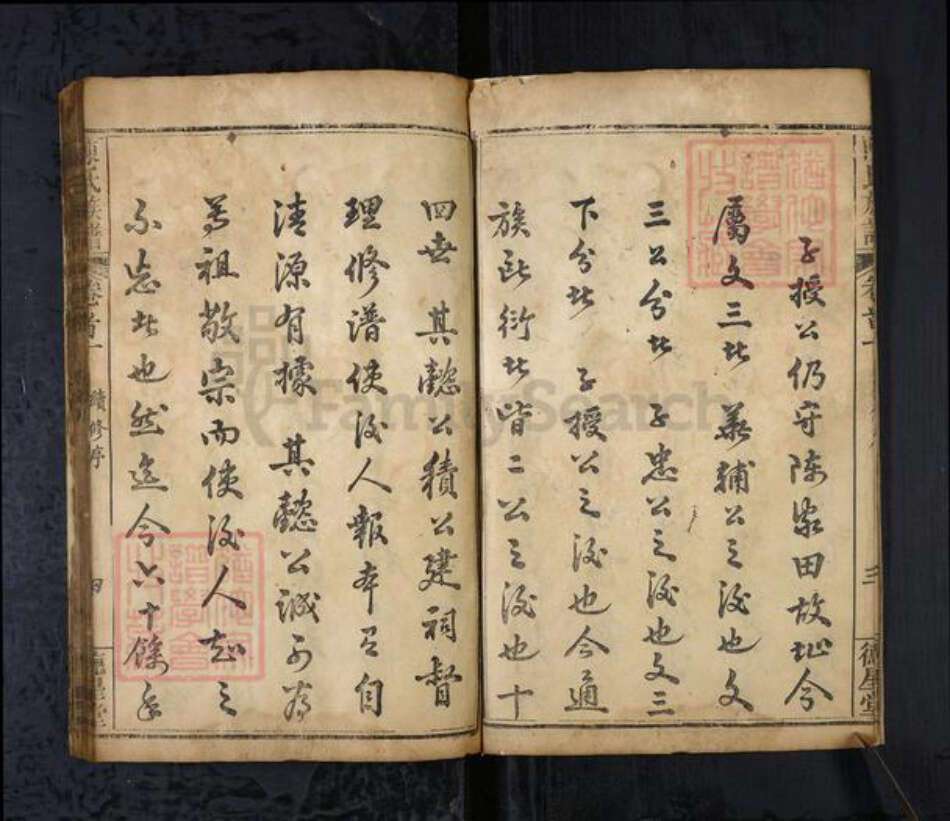 子授公仍守陈家田故址今
屬文三者 輔公之後也文
三公分者 子忠公之後也文三
下分者 子授公之後也今通
族蕃衍者皆二公之後也十
德星堂
四世 其懿公積公建祠督
理修譜使後人報本有自
清源有據 其懿公誠可為
尊祖敬宗而使後人知之
不忘者也然迄今六十餘年
陳氏族譜 卷首一 續修序 四 德星堂
FamilySearch